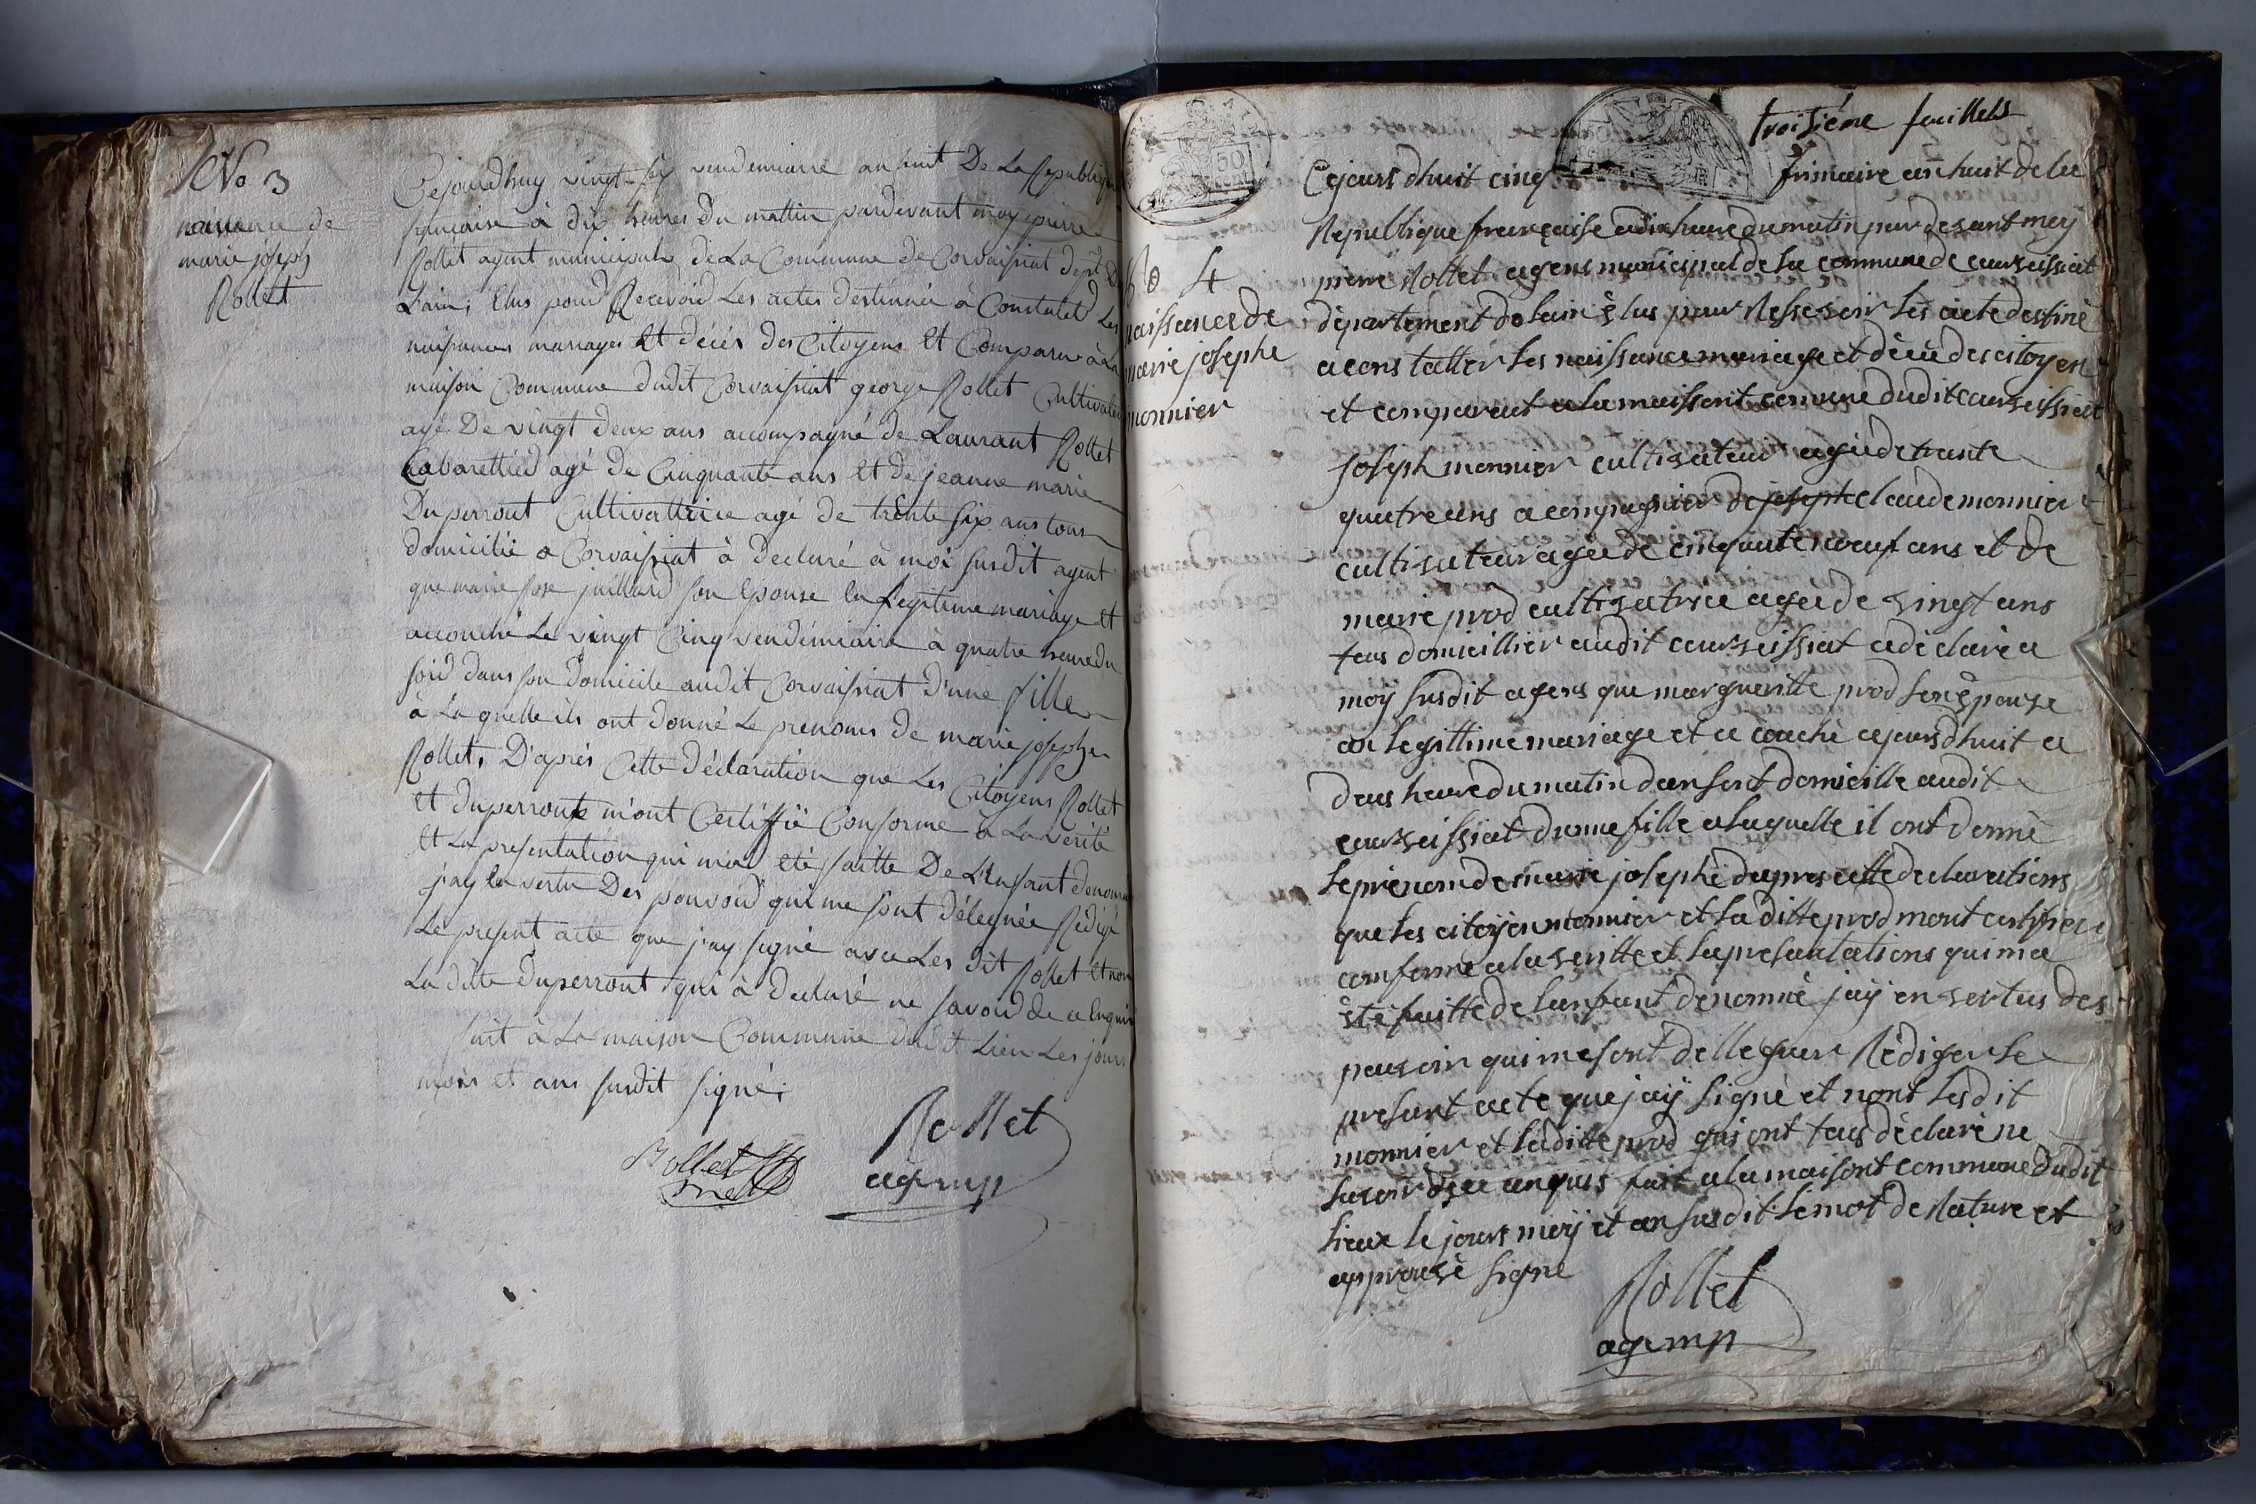 No 3
naissance de
marie joseph
Rollet
Cejourdhuy vingt six vendemiaire an huit De La Republique
française à dix heures Du mattin pardevant moy pierre
Rollet agent municipale de La Commune de Corvaisiat dept De
Lain; Elus pour Recevoid Les actes destinnée à Constated Les
naisances mariages Et décés des Citoyens Et Comparu à La
maison Commune dudit Corvaisiat george Rollet Cultivateur
agé De vingt deux ans accompagné de Laurant Rollet
Cabarettied agé de Cinquante ans Et de jeanne marie
Duperrout Cultivattrice agé de trente six ans tous
domicilié a Corvaisiat à declaré à moi susdit agent
que marie jose juillard son Epouse En Legitime mariage Et
accouché Le vingt Cinq vendémiaire à quatre heure du
soid dans son domicile audit Corvaisiat d'une fille
à La quelle ils ont donné Le prenoms de marie josephe
Rollet. D'aprés Cette déclaration que Les Citoyens Rollet
et duperroute m'ont Certiffié Conforme à La vérité
Et La presentation qui m'a Eté faitte De L'Enfant denomé
j'ay En vertu Des pouvoid qui me sont délegnée Rédigé
Le present acte que j'ay signé avec Les dit Rollet et non
La ditte duperrout qui à declaré ne savoid de ce Enquis
fait à La maison Commune dudit Lieu Les jours
mois et ans susdit signé.
Rollet
Rollet
agt mpl
troisiéme feuillets
Cejours dhuit cinq frimaire an huit de la
No 4
naissances de
marie josephe
monnier
République française à dix heure du matin par devant moÿ
pierre Rollet agens municipal de la commune de courveissiat
département de lain élus pour Resse voir les acte destiné
a cons tatter les naissance mariage et décè des citoyen
et comparut a la maissont comune dudit courveissiat
joseph monnier cultivateur agée de trante
quatre ans a compagnier de joseph claude monnier
cultivateur agée de cinquante noeuf ans et de
marie prod cultivatrice agée de vingt ans
tous domicillier audit courveissiat a déclaré a
moy susdit agens que margueritte prod son épouse
an legittime mariage et a couché cejours dhuit a
deus heure du matin dan sont domicille audit
courveissiat dunne fille a laquelle il ont donné
le prénom de marie josephe dapres cette declarations
que les citoyen monnier et la ditte prod mont certifier
conforme a la veritte et la presantations qui ma
été faitte de lanfant dénomné jaÿ en vertus des
pouvoir qui me sont delleguer Rédiger le
presant acte que jaÿ signé et nont les dit
monnier et la ditte prod qui ont tous déclaré ne
savoir de ce anquis fait a la maisont commune dudit
lieux le jours moÿ et an susdit le mot de Rature et
approuvé signe
Rollet
agt mpl